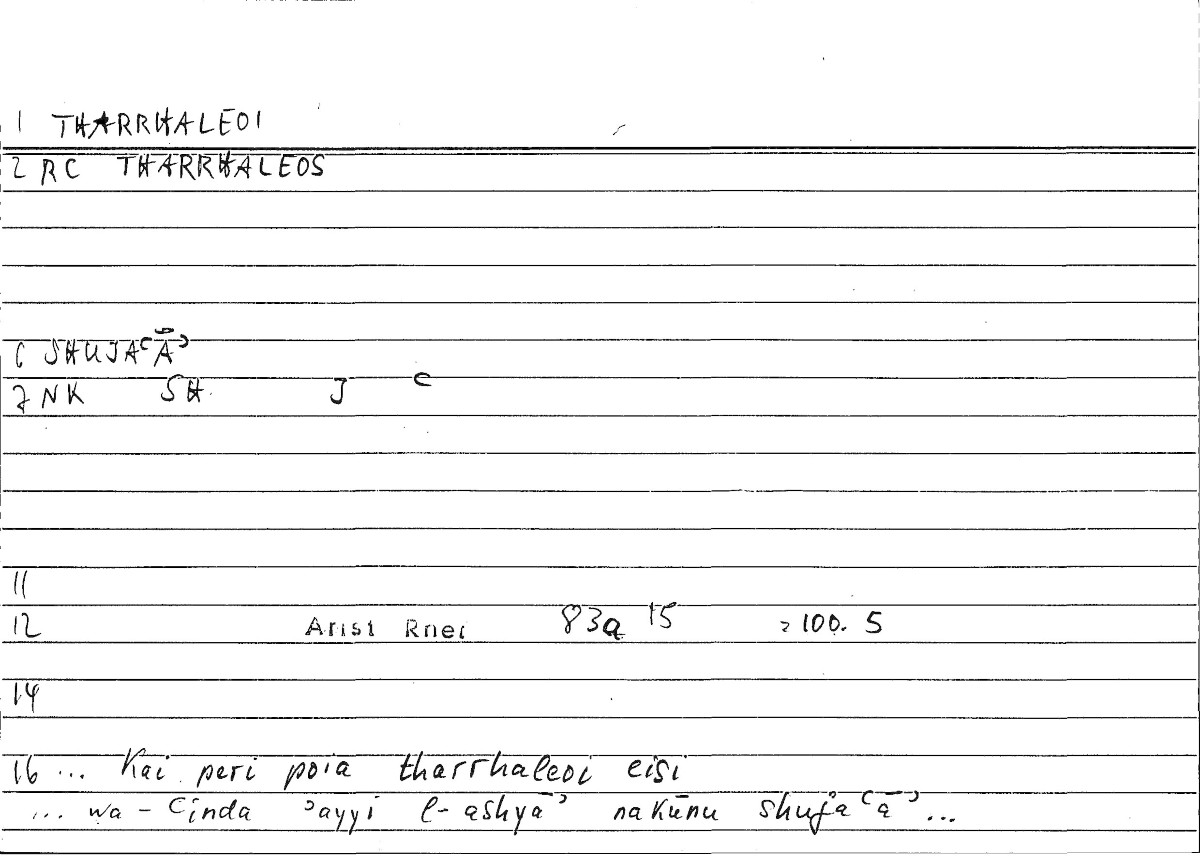 1 THARRHALEOI
2 RC THARRHALEOS
6 SHUJAʿĀʾ
7 NK SH J ʿ
11
12 Arist Rhet 83a 15 = 100. 5
14
16 ... Kai peri poia tharrhaleoi eisi
... wa - ʿinda ʾayyi l-ashyāʾ nakūnu shujaʿāʾ ...